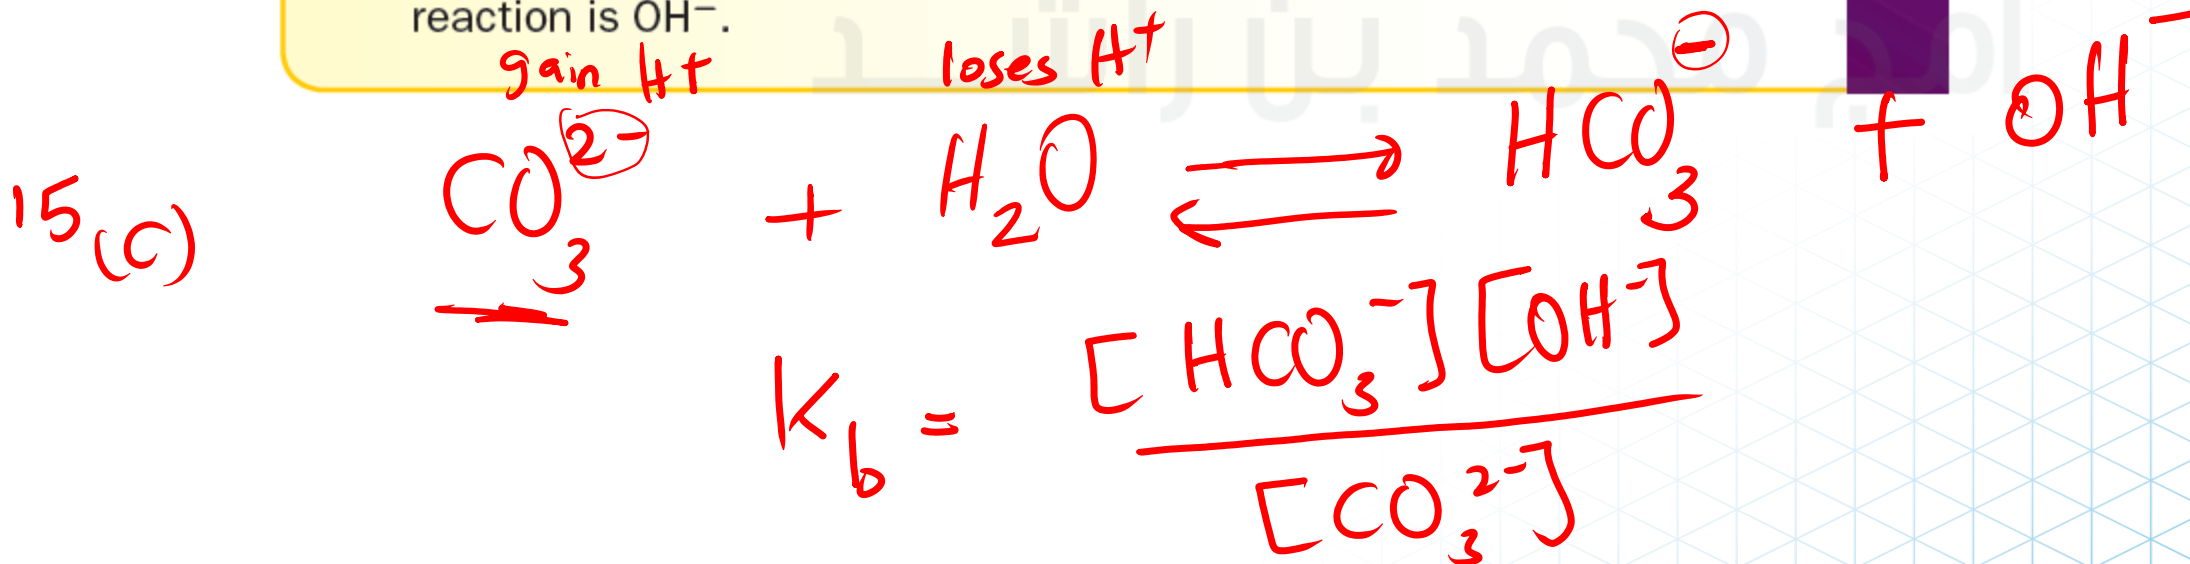 reaction is OH⁻.
gain H+ loses H+
15(c) CO₃²⁻ + H₂O ⇌ HCO₃⁻ + OH⁻
K_b = [HCO₃⁻][OH⁻] / [CO₃²⁻]
محمد بن راشد